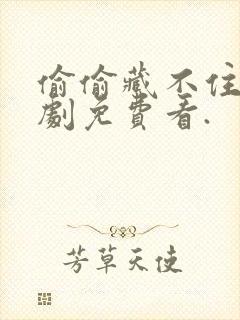 偷偷藏不住
劇免費看.
芳草天使